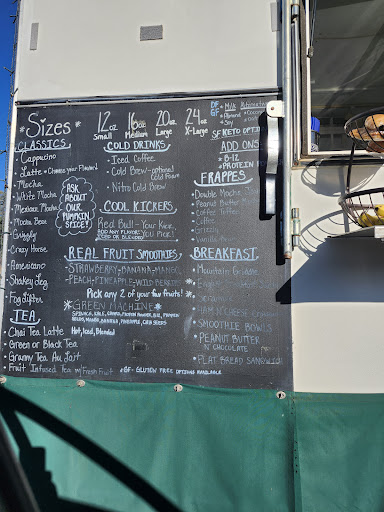 *Sizes*
12oz Small
16oz Medium
20oz Large
24oz X-Large
CLASSICS
Cappuccino
Latte * Choose your Flavor!
Mocha
White Mocha
Mexican Mocha
Mocha Bear
Grizzly
Crazy Horse
Americano
Shakey Jag
Fog Lifter
ASK
ABOUT
OUR
PUMPKIN
SPICE!
TEA
Chai Tea Latte Hot, Iced, Blended
Green or Black Tea
Granny Tea Au Lait
Fruit Infused Tea w/ Fresh Fruit
COLD DRINKS
Iced Coffee
Cold Brew - optional Cold Foam
Nitro Cold Brew
COOL KICKERS
Red Bull - Your Kick,
ADD ANY FLAVOR! You Pick!
ICED OR BLENDED
REAL FRUIT SMOOTHIES
STRAWBERRY - BANANA - MANGO
PEACH - PINEAPPLE - WILD BERRIES
Pick any 2 of your fav fruits!
*GREEN MACHINE*
SPINACH, KALE,
SEEDS, MANGO, BANANA, PINEAPPLE, CHIA SEEDS
*GF - GLUTEN FREE OPTIONS AVAILABLE
DF
GF
Milk Alternatives
Almond
Soy
SF KETO OPTIONS
ADD ONS
B-12
PROTEIN
FRAPPES
Double Mocha
Peanut Butter
Coffee Toffee
Coffee
Grizzly
Vanilla
BREAKFAST
Mountain
English
HAM N CHEESE
SMOOTHIE BOWLS
PEANUT BUTTER
N' CHOCOLATE
FLAT BREAD SANDWICH